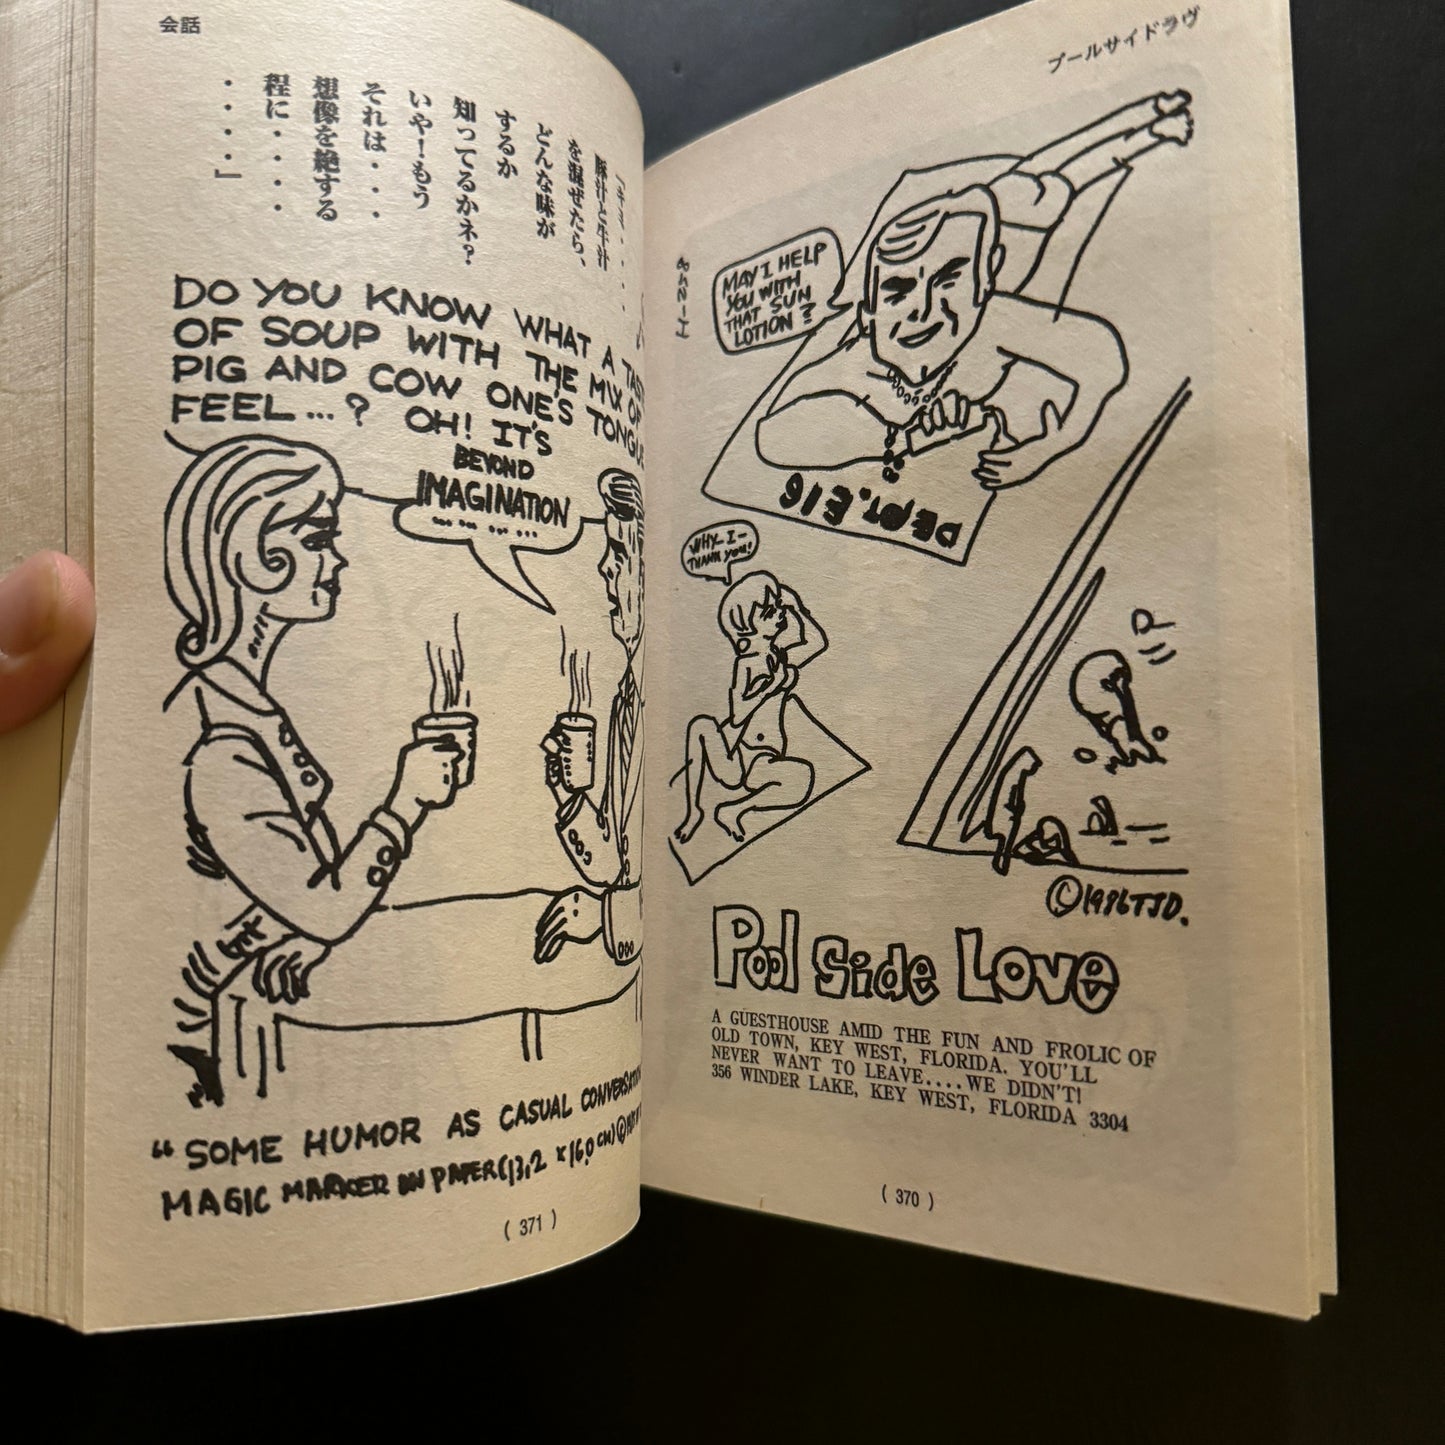 会話
「ホラ・・・・
豚汁と牛汁
を混ぜたら、
どんな味が
するか
知ってるかネ?
いや!もう
それは・・・
想像を絶する
程に・・・・
・・・・」
DO YOU KNOW WHAT A TAS
OF SOUP WITH THE MIX OF
PIG AND COW ONE'S TONGUE
FEEL...? OH! IT'S
BEYOND
IMAGINATION
... ... ... ...
"SOME HUMOR AS CASUAL CONVERSATION
MAGIC MARKER ON PAPER(13,2 ×16,0 CM)©
( 371 )
プールサイドラヴ
MAY I HELP
YOU WITH
THAT SUN
LOTION?
DEPT. E16
WHY-I-
THANK YOU!
UP
©1986TJD.
Pool Side Love
A GUESTHOUSE AMID THE FUN AND FROLIC OF
OLD TOWN, KEY WEST, FLORIDA. YOU'LL
NEVER WANT TO LEAVE....WE DIDN'T!
356 WINDER LAKE, KEY WEST, FLORIDA 3304
( 370 )